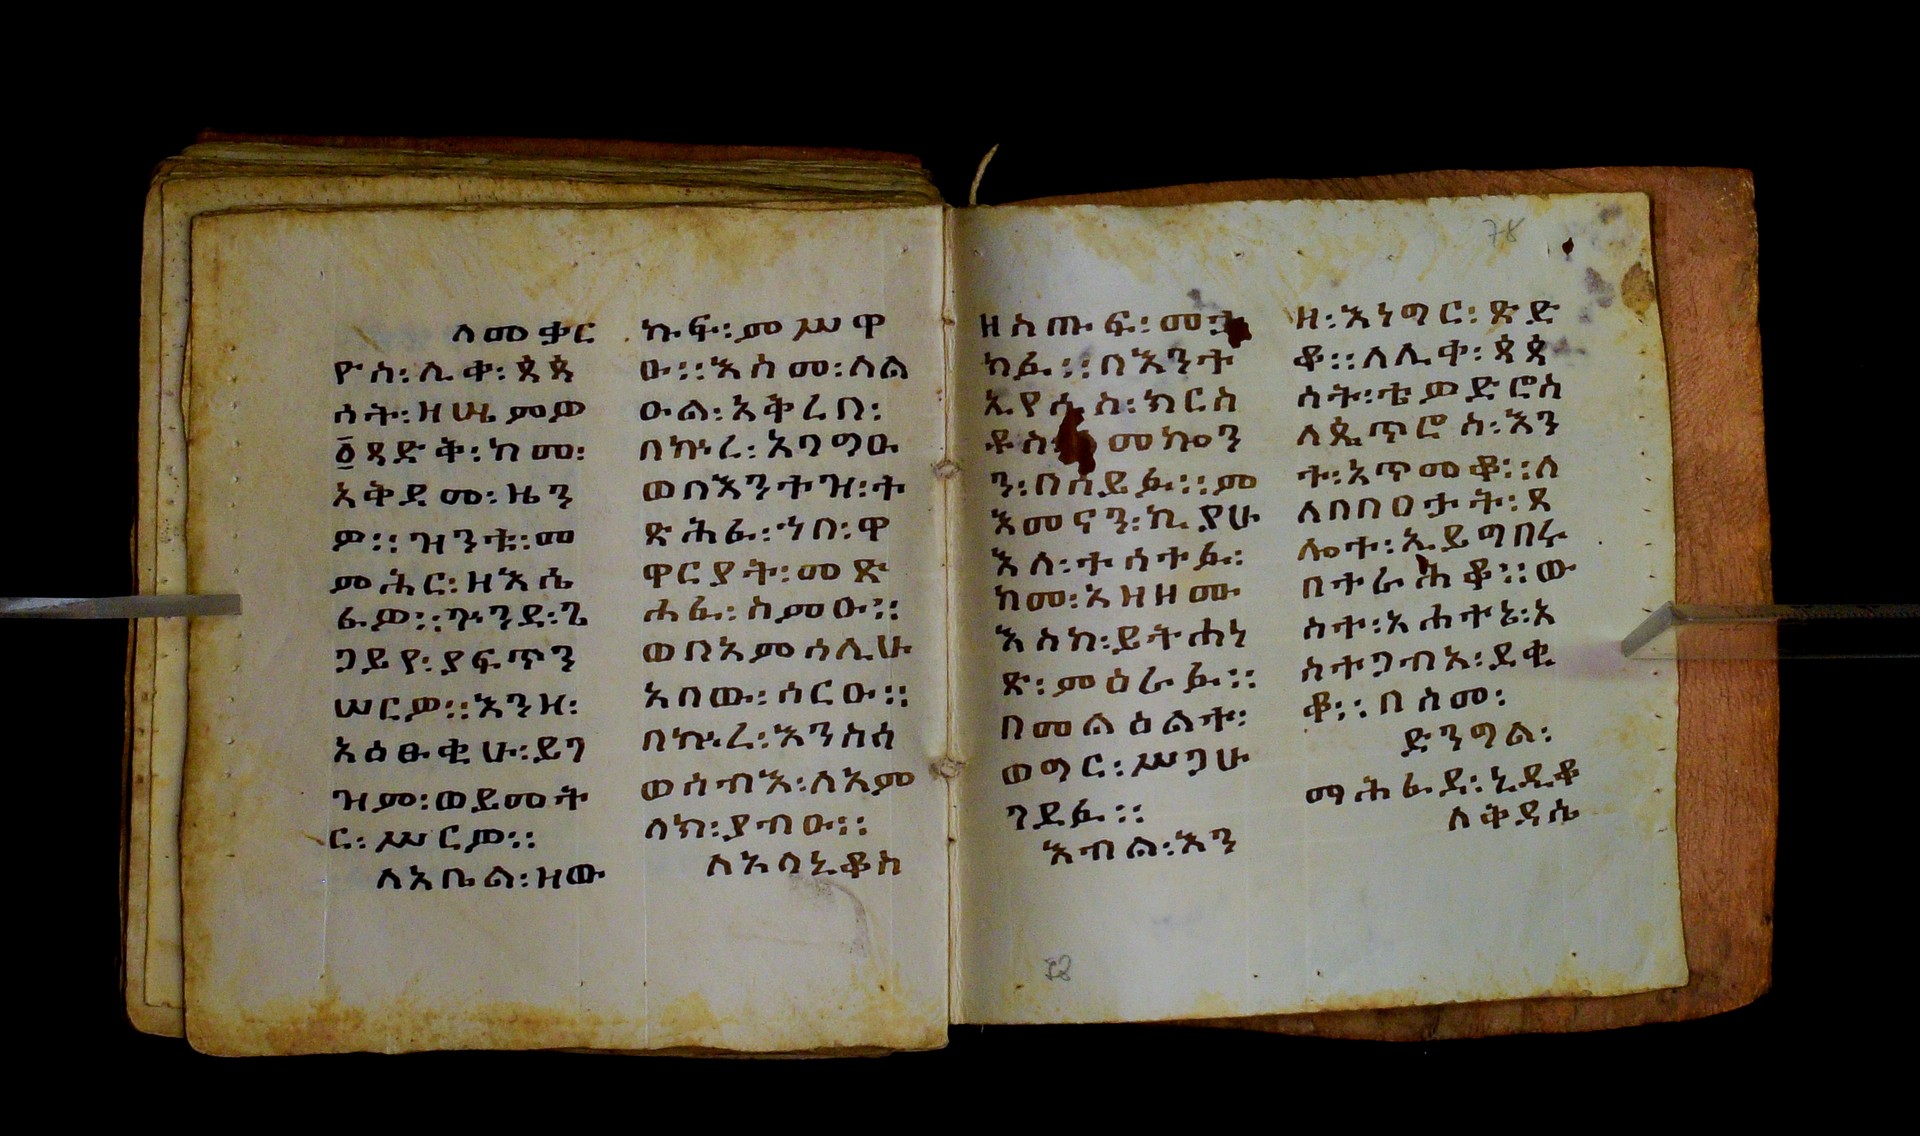 ለመቃር
ዮስ፡ሊቀ፡ጳጳ
ሳት፡ዘሤምዎ
፩ጻድቅ፡ከመ፡
አቅደመ፡ዜን
ዎ፡፡ዝንቱ፡መ
ምሕር፡ዘእሴ
ፈዎ፡፡ጕንደ፡ጊ
ጋይየ፡ያፍጥን
ሠርዎ፡፡እንዘ፡
አዕፁቂሁ፡ይገ
ዝም፡ወይመት
ር፡ሥርም፡፡
ለአቤል፡ዘው
ኩፍ፡ምሥዋ
ዑ፡፡እስመ፡ስል
ዑል፡አቅረበ፡
በኵረ፡አባግዑ
ወበእንተዝ፡ተ
ጽሕፈ፡ኀበ፡ዋ
ዋርያት፡መጽ
ሐፈ፡ስምዑ፡፡
ወበአምሳሊሁ
አበው፡ሰርዑ፡፡
በኵረ፡እንስሳ
ወሰብእ፡ለአም
ላክ፡ያብዑ፡፡
ለአላኒቆስ
ዘስጡፍ፡መ
ከፉ፡፡በእንተ
ኢየሱስ፡ክርስ
ቶስ መኰን
ን፡በሰይፉ፡፡ም
እመናን፡ኪያሁ
እለ፡ተሳተፉ፡
ከመ፡አዘዘሙ
እስከ፡ይትሐነ
ጽ፡ምዕራፉ፡፡
በመልዕልቱ፡
ወግር፡ሥጋሁ
ገደፉ፡፡
እብል፡እን
ዘ፡እነግር፡ጽድ
ቆ፡፡ለሊቀ፡ጳጳ
ሳት፡ቴዎድሮስ
ለጴጥሮስ፡እን
ተ፡አጥመቆ፡፡ለ
ለበበዐታት፡ጸ
ሎተ፡ኢይግበሩ
በተራሕቆ፡፡ው
ስተ፡አሐተኔ፡አ
ስተጋብአ፡ደቂ
ቆ፡፡በስመ፡
ድንግል፡
ማሕፈደ፡ኒዲቆ
ለቅዳሴ
78
78